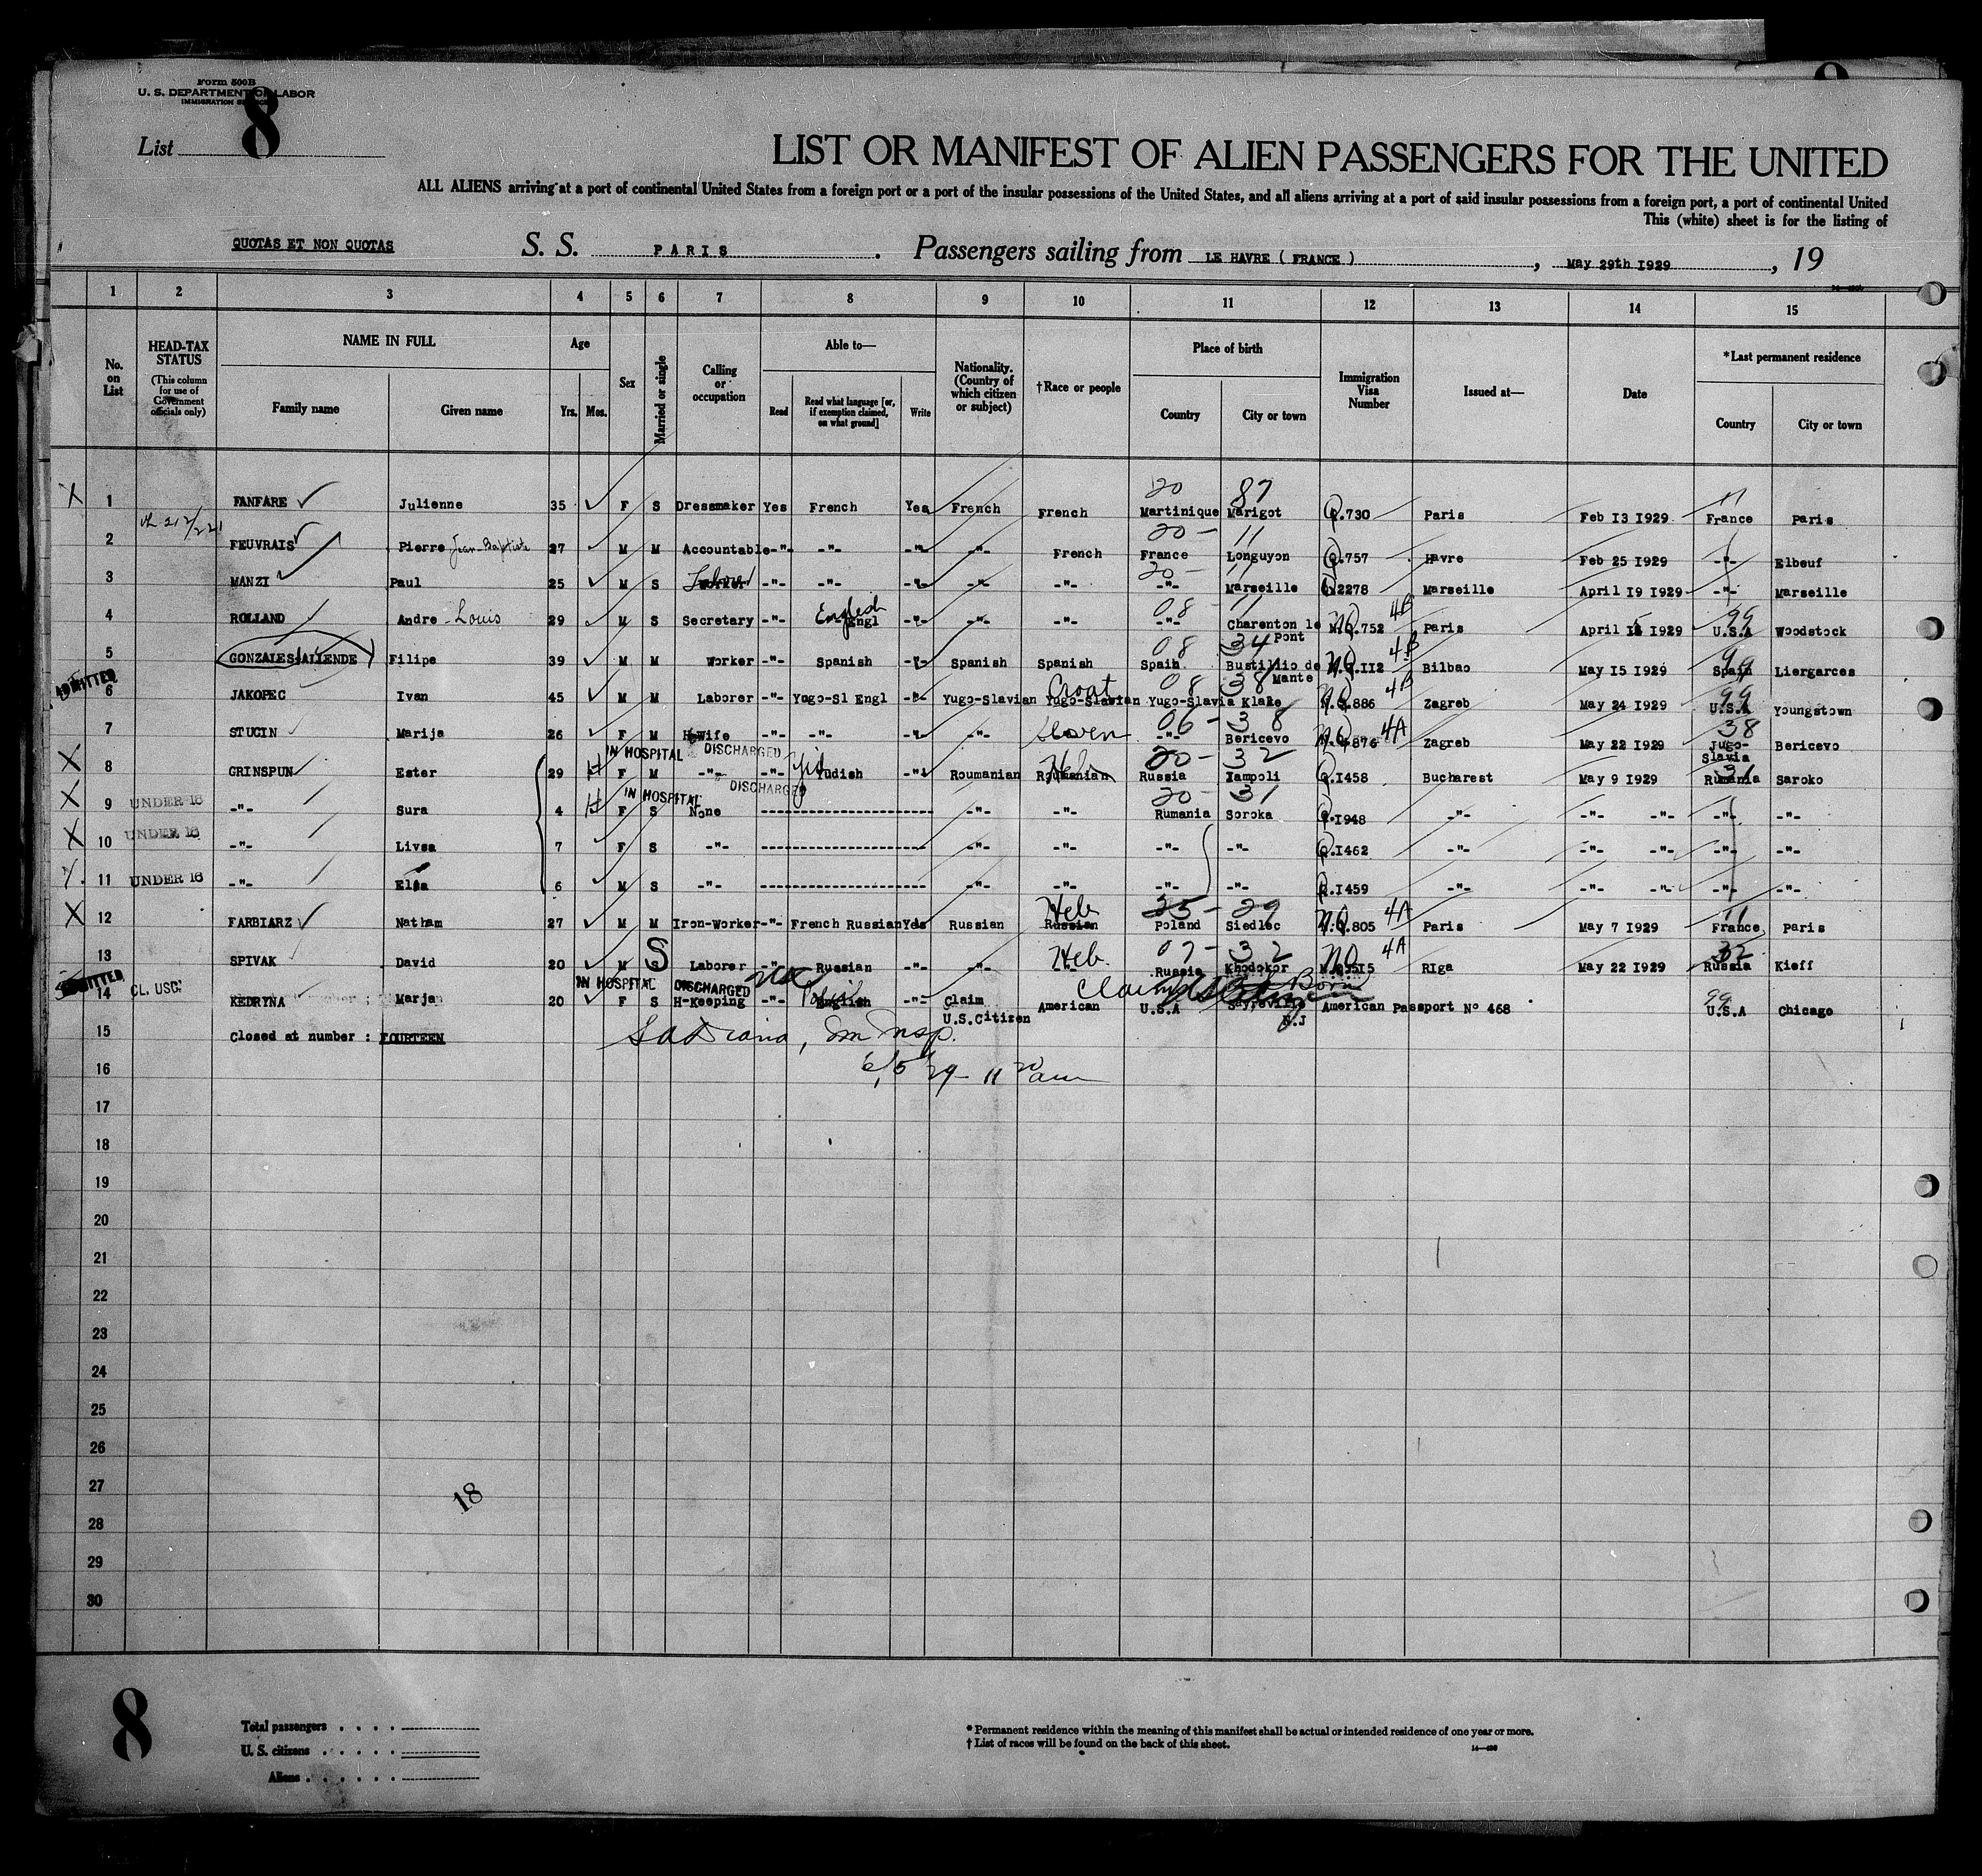 Form 500B
U. S. DEPARTMENT OF LABOR
IMMIGRATION SERVICE
8
List
LIST OR MANIFEST OF ALIEN PASSENGERS FOR THE UNITED
ALL ALIENS arriving at a port of continental United States from a foreign port or a port of the insular possessions of the United States, and all aliens arriving at a port of said insular possessions from a foreign port, a port of continental United
This (white) sheet is for the listing of
QUOTAS ET NON QUOTAS S. S. PARIS . Passengers sailing from LE HAVRE ( FRANCE ) , May 29th 1929 , 19
1 2 3 4 5 6 7 8 9 10 11 12 13 14 15
No. on List HEAD-TAX STATUS (This column for use of Government officials only) NAME IN FULL Family name Given name Age Yrs. Mos. Sex Married or single Calling or occupation Able to— Read Read what language [or, if exemption claimed, on what ground] Write Nationality. (Country of which citizen or subject) †Race or people Place of birth Country City or town Immigration Visa Number Issued at— Date *Last permanent residence Country City or town
20 87 11
X 1 FANFARE Julienne 35 F S Dressmaker Yes French Yes French French Martinique Marigot Q.730 Paris Feb 13 1929 France Paris
20 - 11
2 FEUVRAIS Pierre Jean-Baptiste 27 M M Accountable -"- -"- -"- -"- French France Longuyon Q.757 Havre Feb 25 1929 -"- Elbeuf
20 - 11
3 MANZI Paul 25 M S -"- -"- -"- -"- -"- -"- Marseille Q.2278 Marseille April 19 1929 -"- Marseille
08 - 11 NQ 4B 99
4 ROLLAND Andre - Louis 29 M S Secretary -"- English Engl -"- -"- -"- -"- Charenton le Pont N.Q.752 Paris April 1929 U.S.A Woodstock
08 34 NQ 4B 99
5 GONZALES-ALIENDE Filipe 39 M M Worker -"- Spanish -"- Spanish Spanish Spain Bustillio de Mante N.Q.112 Bilbao May 15 1929 Spain Liergarces
ADMITTED Croat 08 38 4B 99
6 JAKOPEC Ivan 45 M M Laborer -"- Yugo-Sl Engl -"- Yugo-Slavian Yugo-Slavian Yugo-Slavia Klake N.Q.886 Zagreb May 24 1929 U.S.A Youngstown
06 - 38 NQ 4A 38
7 STUCIN Marija 26 F M H-Wife -"- -"- -"- -"- Sloven -"- Bericevo N.Q.876 Zagreb May 22 1929 Jugo-Slavia Bericevo
IN HOSPITAL DISCHARGED Yid Heb 20 - 32 31
X 8 GRINSPUN Ester 29 H F M -"- -"- Yudish -"- Roumanian Roumanian Russia Yampoli Q.1458 Bucharest May 9 1929 Rumania Saroko
IN HOSPITAL DISCHARGED 20 - 31
X 9 UNDER 16 -"- Sura 4 H F S None -"- -"- Rumania Soroka Q.1948 -"- -"- -"- -"- -"-
X 10 UNDER 16 -"- Livsa 7 F S -"- -"- -"- -"- -"- Q.1462 -"- -"- -"- -"- -"-
X 11 UNDER 16 -"- 6 M S -"- -"- -"- -"- -"- Q.1459 -"- -"- -"- -"- -"-
Heb 25 - 29 4A 11
X 12 FARBIARZ Natham 27 M M Iron-Worker -"- French Russian Yes Russian Russian Poland Siedlec N.Q.805 Paris May 7 1929 France Paris
S Heb. 07 - 32 NQ 4A 32
13 SPIVAK David 20 M S Laborer -"- Russian -"- -"- -"- Russia Khodokor N.Q.3515 Riga May 22 1929 Russia Kieff
ADMITTED CL. USC: IN HOSPITAL DISCHARGED Claims Born 99
14 KEDRYNA Marja 20 F S H-Keeping -"- English -"- Claim U.S.Citizen American U.S.A Sayreville N.J American Passport N° 468 U.S.A Chicago
15 Closed at number : FOURTEEN
Imm Insp.
16 6/5/29 - 11 20 am
17
18
19
20
21
22
23
24
25
26
27
18
28
29
30
8
Total passengers
U. S. citizens
Aliens
* Permanent residence within the meaning of this manifest shall be actual or intended residence of one year or more.
† List of races will be found on the back of this sheet.